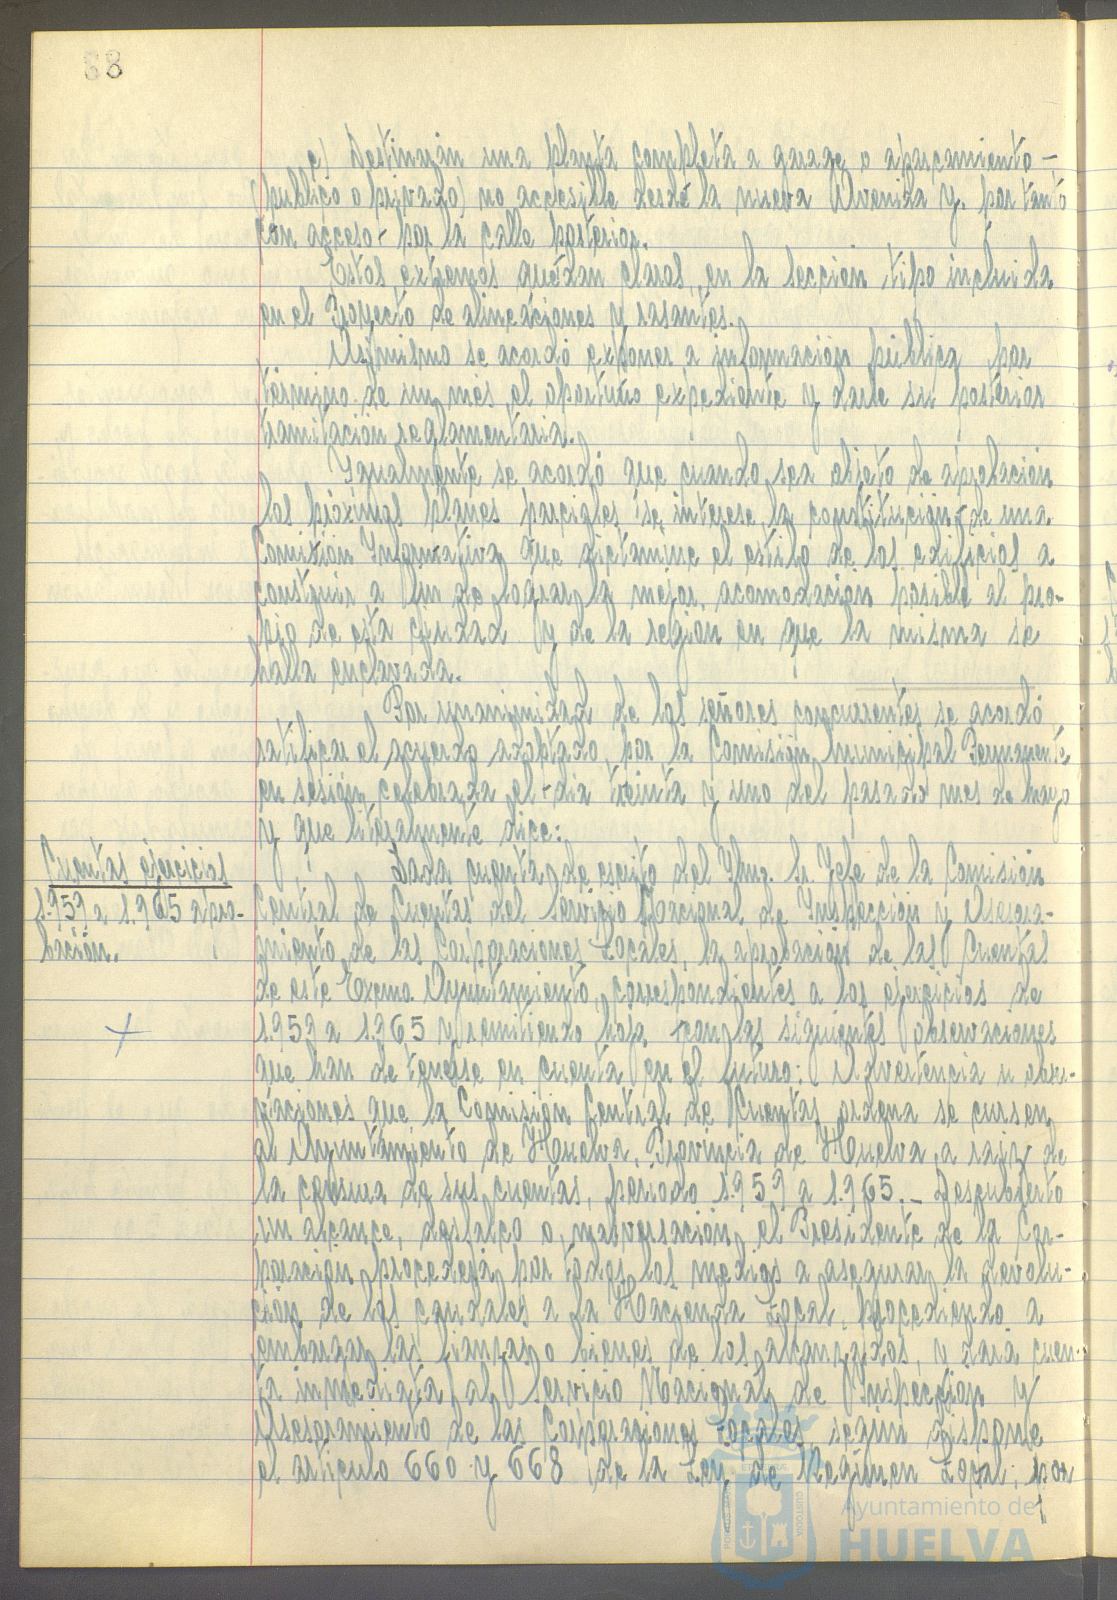 88
c) Destinarán una planta completa a garage o aparcamiento -
(público o privado) no accesible desde la nueva Avenida y por tanto
con acceso - por la calle posterior.
Estos extremos quedan claros, en la sección tipo incluida
en el Proyecto de alineaciones y rasantes.
Asimismo se acordó exponer a información pública por
término de un mes, el oportuno expediente y darle su posterior
tramitación reglamentaria.
Igualmente se acordó que cuando sea objeto de aprobación
los próximos planes parciales se interese la constitución de una
Comisión Informativa que dictamine el estilo de los edificios a
construir a fin de lograr la mejor acomodación posible al pro-
pio de esta ciudad y de la región en que la misma se
halla enclavada.
Por unanimidad de los señores concurrentes se acordó
ratificar el acuerdo adoptado, por la Comisión Municipal Permanente
en sesión celebrada el día treinta y uno del pasado mes de mayo
y que literalmente dice:
Cuentas ejercicios
1.959 a 1.965 apro-
bación.
Dada cuenta de escrito del Ilmo. Sr. Jefe de la Comisión
Central de Cuentas del Servicio Nacional de Inspección y Asesora-
miento de las Corporaciones Locales, la aprobación de las Cuentas
de este Excmo. Ayuntamiento, correspondientes a los ejercicios de
1.959 a 1.965 y remitiendo hoja con las siguientes observaciones
que han de tenerse en cuenta en el futuro: Advertencia u obser-
vaciones que la Comisión Central de Cuentas ordena se cursen
al Ayuntamiento de Huelva, Provincia de Huelva, a raiz de
la censura de sus cuentas, período 1.959 a 1.965.- Descubierto
un alcance, desfalco o malversación, el Presidente de la Cor-
poración procederá por todos los medios a asegurar la devolu-
ción de los caudales a la Hacienda Local, procediendo a
embargar las fianzas o bienes de los alcanzados, y dará cuen-
ta inmediata al Servicio Nacional de Inspección y
Asesoramiento de las Corporaciones Locales, según dispone
el artículo 660 y 668 de la Ley de Régimen Local; por
Ayuntamiento de
HUELVA